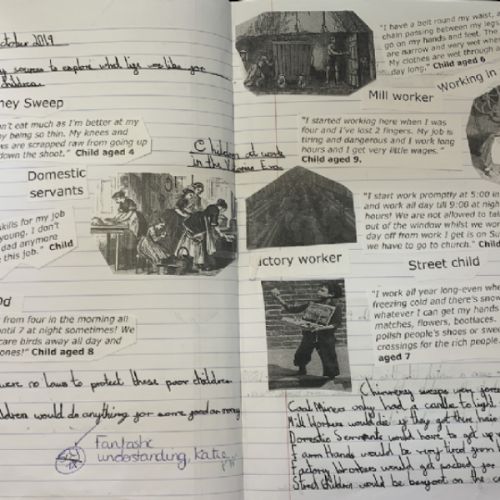 October 2019
sources to explore what life was like for
children.
ney Sweep
n't eat much as I'm better at my
y being so thin. My knees and
ws are scrapped raw from going up
down the shoot." Child aged 4
Domestic
servants
skills for my job
young. I don't
dad anymore
this job." Child
from four in the morning all
until 7 at night sometimes! We
care birds away all day and
ones!" Child aged 8
were no laws to protect these poor children
children would do anything for some food or money
Fantastic
understanding, Katie
Children at work
in the Victorian Era
"I have a belt round my waist, a
chain passing between my legs
go on my hands and feet. The
are narrow and very wet where
My clothes are wet through
day long." Child aged 6
Mill worker
Working in
"I started working here when I was
four and I've lost 2 fingers. My job is
tiring and dangerous and I work long
hours and I get very little wages."
Child aged 9.
"I start work promptly at 5:00 in
and work all day till 9:00 at night
hours! We are not allowed to talk
out of the window whilst we work
day off from work I get is on Su
we have to go to church." Child
actory worker
Street child
"I work all year long-even whe
freezing cold and there's snow
whatever I can get my hands
matches, flowers, bootlaces.
polish people's shoes or swee
crossings for the rich people.
aged 7
Chimney sweeps were
Coal Miners only had a candle to light
Mill Workers would die if they got there hair
Domestic Servants would have to get up
Farm Hands would be very tired from
Factory workers would get
Street children would be on the